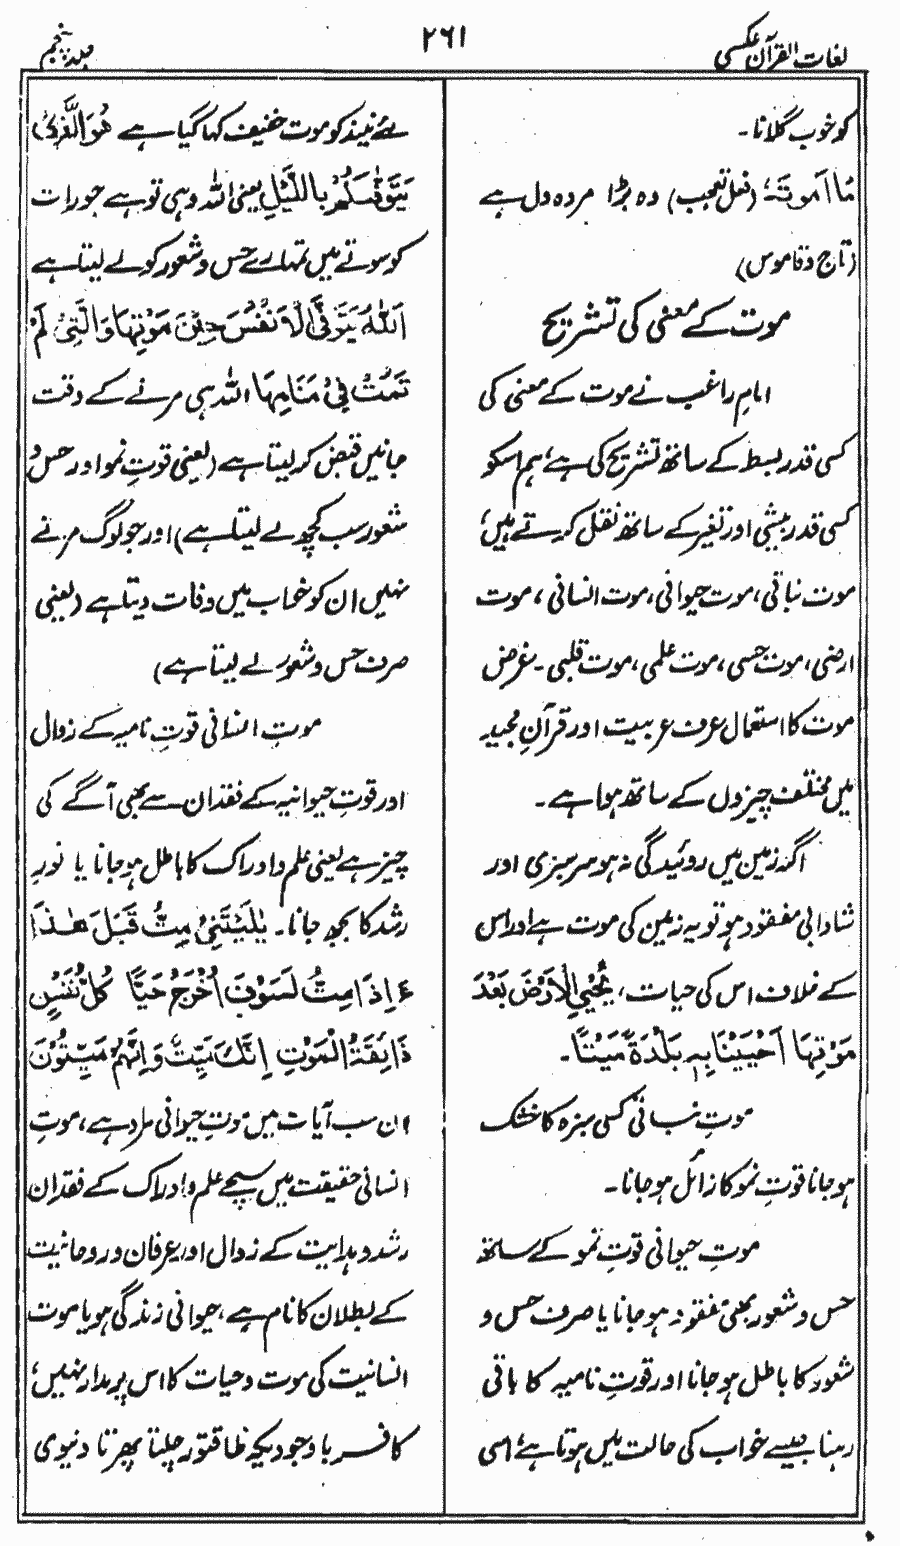 لغات القرآن عکسی
۲۶۱
جلد پنجم
کو خوب گلانا۔
مَا اَمْوَتَہٗ (فعل تعجب) وہ بڑا مردہ دل ہے
(تاج و قاموس)
موت کے معنی کی تشریح
امام راغب نے موت کے معنی کی
کسی قدر بسط کے ساتھ تشریح کی ہے، ہم اسکو
کسی قدر بیشی اور تغیر کے ساتھ نقل کرتے ہیں،
موت نباتی، موت حیوانی، موت انسانی، موت
ارضی، موت حسی، موت علمی، موت قلبی۔ غرض
موت کا استعمال عرف عربیت اور قرآنِ مجید
میں مختلف چیزوں کے ساتھ ہوا ہے۔
اگر زمین میں روئیدگی نہ ہو سرسبزی اور
شادابی مفقود ہو تو یہ زمین کی موت ہے اور اس
کے خلاف اس کی حیات، یُحْیِی الْاَرْضَ بَعْدَ
مَوْتِھَا اَحْیَیْنَا بِہٖ بَلْدَۃً مَّیْتًا۔
موتِ نباتی کسی سبزہ کا خشک
ہو جانا قوتِ نمو کا زائل ہو جانا۔
موتِ حیوانی قوتِ نمو کے ساتھ
حس و شعور بھی مفقود ہو جانا یا صرف حس و
شعور کا باطل ہو جانا اور قوتِ نامیہ کا باقی
رہنا جیسے خواب کی حالت میں ہوتا ہے، اسی
لئے نیند کو موت خفیف کہا گیا ہے ھُوَ الَّذِیْ
یَتَوَفّٰىکُمْ بِاللَّیْلِ یعنی اللہ وہی تو ہے جو رات
کو سوتے میں تمہارے حس و شعور کو لے لیتا ہے
اَللّٰہُ یَتَوَفَّی الْاَنْفُسَ حِیْنَ مَوْتِھَا وَالَّتِیْ لَمْ
تَمُتْ فِیْ مَنَامِھَا اللہ ہی مرنے کے وقت
جانیں قبض کر لیتا ہے (یعنی قوتِ نمو اور حس و
شعور سب کچھ لے لیتا ہے) اور جو لوگ مرتے
نہیں ان کو خواب میں وفات دیتا ہے (یعنی
صرف حس و شعور لے لیتا ہے)
موتِ انسانی قوتِ نامیہ کے زوال
اور قوتِ حیوانیہ کے فقدان سے بھی آگے کی
چیز ہے یعنی علم و ادراک کا باطل ہو جانا یا نورِ
رشد کا بجھ جانا۔ یٰلَیْتَنِیْ مِتُّ قَبْلَ ھٰذَا
ءَاِذَا مِتُّ لَسَوْفَ اُخْرَجُ حَیًّا کُلُّ نَفْسٍ
ذَائِقَۃُ الْمَوْتِ اِنَّکَ مَیِّتٌ وَّاِنَّھُمْ مَّیِّتُوْنَ
ان سب آیات میں موتِ حیوانی مراد ہے، موتِ
انسانی حقیقت میں سچے علم و ادراک کے فقدان
رشد و ہدایت کے زوال اور عرفان و روحانیت
کے بطلان کا نام ہے، حیوانی زندگی ہو یا موت
انسانیت کی موت و حیات کا اس پر مدار نہیں،
کافر باوجودیکہ طاقتور چلتا پھرتا دنیوی